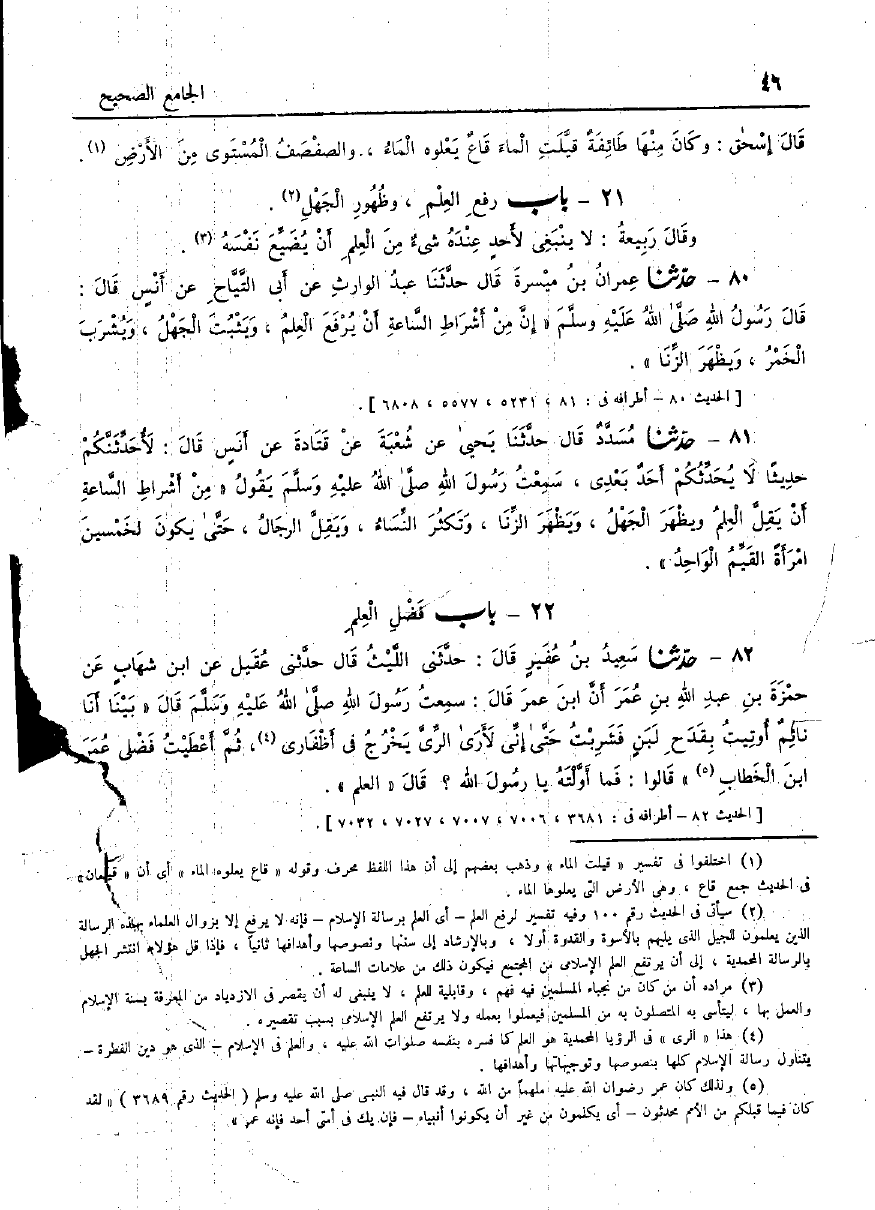 ٤٦
الجامع الصحيح
قَالَ إِسْحٰق : وكَانَ مِنْهَا طَائِفَةٌ قيَّلَتِ الْماءَ قَاعٌ يَعْلوه الْمَاءُ ، والصفْصَفُ الْمُسْتَوى مِنَ الأَرْضِ (١) .
٢١ – باب رفع ِ العِلْمِ ، وظُهُورِ الْجَهْلِ (٢) .
وقَالَ رَبِيعةُ : لا يَنْبَغِى لأَحدٍ عِنْدَهُ شىءٌ مِنَ الْعِلمِ أَنْ يُضَيِّعَ نَفْسَهُ (٣) .
٨٠ – حدّثنا عِمرانُ بنُ ميْسرةَ قَال حدَّثَنَا عبدُ الوارثِ عن أَبى التَّيَّاحِ عن أَنَسٍ قَالَ :
قَالَ رَسُولُ اللهِ صَلَّى اللهُ عَلَيْهِ وسلَّمَ « إِنَّ مِنْ أَشْرَاطِ السَّاعةِ أَنْ يُرْفَعَ الْعِلمُ ، وَيَثْبُتَ الْجَهْلُ ، وَيُشْرَبَ
الْخَمْرُ ، وَيظْهَرَ الزِّنَا » .
[ الحديث ٨٠ – أطرافه فى : ٨١ ، ٥٢٣١ ، ٥٥٧٧ ، ٦٨٠٨ ] .
٨١ – حدّثنا مُسَدَّدٌ قَال حدَّثَنَا يَحيىٰ عن شُعْبَةَ عنْ قَتَادَةَ عن أَنَسٍ قَالَ : لَأُحَدِّثَنَّكُمْ
حدِيثًا لَا يُحَدِّثُكُمْ أَحَدٌ بَعْدِى ، سَمِعْتُ رَسُولَ اللهِ صلَّى اللهُ عليْهِ وَسَلَّمَ يَقُولُ « مِنْ أَشْراطِ السَّاعةِ
أَنْ يَقِلَّ الْعِلمُ ويظْهَرَ الْجَهْلُ ، وَيَظْهَرَ الزِّنَا ، وَتَكثُرَ النِّسَاءُ ، وَيَقِلَّ الرجَالُ ، حَتَّىٰ يكونَ لخَمْسينَ
امْرَأَةً القَيِّمُ الْوَاحِدُ » .
٢٢ – باب فَضْلِ الْعِلمِ
٨٢ – حدّثنا سَعِيدُ بنُ عُفَيرٍ قَالَ : حدَّثَنى اللَّيْثُ قَال حدَّثنى عُقَيل عن ابن شهَابٍ عَن
حمْزَةَ بنِ عبدِ اللهِ بنِ عُمَرَ أَنَّ ابنَ عمرَ قَالَ : سمِعتُ رَسُولَ اللهِ صلَّى اللهُ عَلَيْهِ وَسَلَّمَ قَالَ « بَيْنَا أَنَا
نائِمٌ أُوتِيتُ بِقَدَحِ لبَنٍ فَشَرِبْتُ حَتَّىٰ إِنِّى لَأَرَى الرِّىَّ يَخْرُجُ فى أَظْفَارِى (٤)، ثُمَّ أَعْطَيْتُ فَضْلِى عُمَرَ
ابنَ الْخَطَابِ (٥) » قَالوا : فَما أَوَّلْتَهُ يا رسُولَ الله ؟ قَالَ « العلم » .
[ الحديث ٨٢ – أطرافه فى : ٣٦٨١ ، ٧٠٠٦ ، ٧٠٠٧ ، ٧٠٢٧ ، ٧٠٣٢ ] .
(١) اختلفوا فى تفسير « قيلت الماء » وذهب بعضهم إلى أن هذا اللفظ محرف وقوله « قاع يعلوه الماء » أى أن « قيعان»
فى الحديث جمع قاع ، وهى الأرض التى يعلوها الماء .
(٢) سيأتى فى الحديث رقم ١٠٠ وفيه تفسير لرفع العلم – أى العلم برسالة الإسلام – فإنه لا يرفع إلا بزوال العلماء بهذه الرسالة
الذين يعلمون للجيل الذى يليهم بالأسوة والقدوة أولا ، وبالإرشاد إلى سننها ونصوصها وأهدافها ثانياً ، فإذا قل هؤلاء انتشر الجهل
بالرسالة المحمدية ، إلى أن يرتفع العلم الإسلامى من المجتمع فيكون ذلك من علامات الساعة .
(٣) مراده أن من كان من نجباء المسلمين فيه فهم ، وقابلية للعلم ، لا ينبغى له أن يقصر فى الازدياد من المعرفة بسنة الإسلام
والعمل بها ، ليتأسى به المتصلون به من المسلمين فيعملوا بعمله ولا يرتفع العلم الإسلامى بسبب تقصيره .
(٤) هذا « الرى » فى الرؤيا المحمدية هو العلم كما فسره بنفسه صلوات الله عليه ، والعلم فى الإسلام – الذى هو دين الفطرة –
يتناول رسالة الإسلام كلها بنصوصها وتوجيهاتها وأهدافها .
(٥) ولذلك كان عمر رضوان الله عليه ملهماً من الله ، وقد قال فيه النبى صلى الله عليه وسلم ( الحديث رقم ٣٦٨٩ ) « لقد
كان فيما قبلكم من الأمم محدثون – أى يكلمون من غير أن يكونوا أنبياء – فإن يك فى أمتى أحد فإنه عمر » .